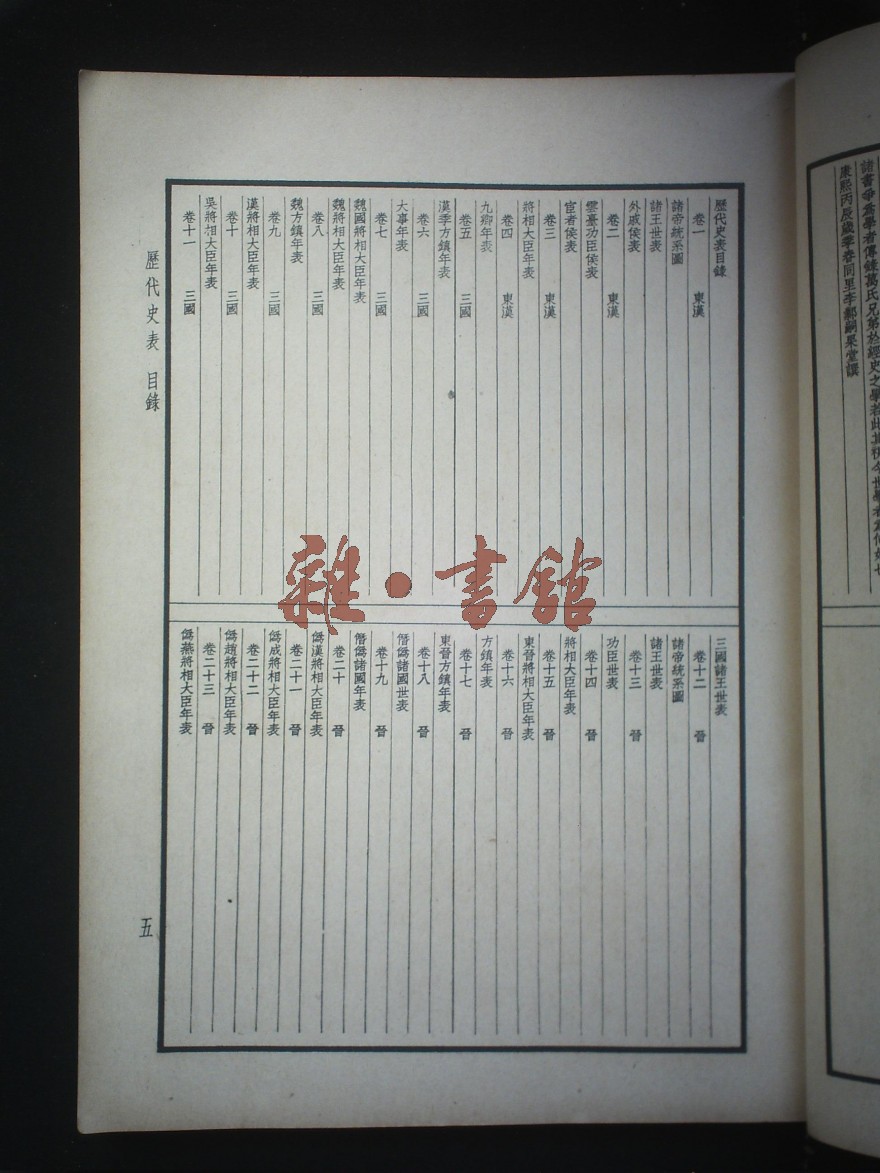 諸書爭爲學者傳錄萬氏兄弟於經史之學若此
康熙丙辰歲季春同里李鄴嗣杲堂譔
歷代史表目錄
卷一 東漢
諸帝統系圖
諸王世表
外戚侯表
卷二 東漢
雲臺功臣侯表
宦者侯表
卷三 東漢
將相大臣年表
卷四 東漢
九卿年表
卷五 三國
漢季方鎮年表
卷六 三國
大事年表
卷七 三國
魏國將相大臣年表
魏將相大臣年表
卷八 三國
魏方鎮年表
卷九 三國
漢將相大臣年表
卷十 三國
吳將相大臣年表
卷十一 三國
三國諸王世表
卷十二 晉
諸帝統系圖
諸王世表
卷十三 晉
功臣世表
卷十四 晉
將相大臣年表
卷十五 晉
東晉將相大臣年表
卷十六 晉
方鎮年表
卷十七 晉
東晉方鎮年表
卷十八 晉
僭僞諸國世表
卷十九 晉
僭僞諸國年表
卷二十 晉
僞漢將相大臣年表
卷二十一 晉
僞成將相大臣年表
卷二十二 晉
僞趙將相大臣年表
卷二十三 晉
僞燕將相大臣年表
歷代史表 目錄
五
雜·書館